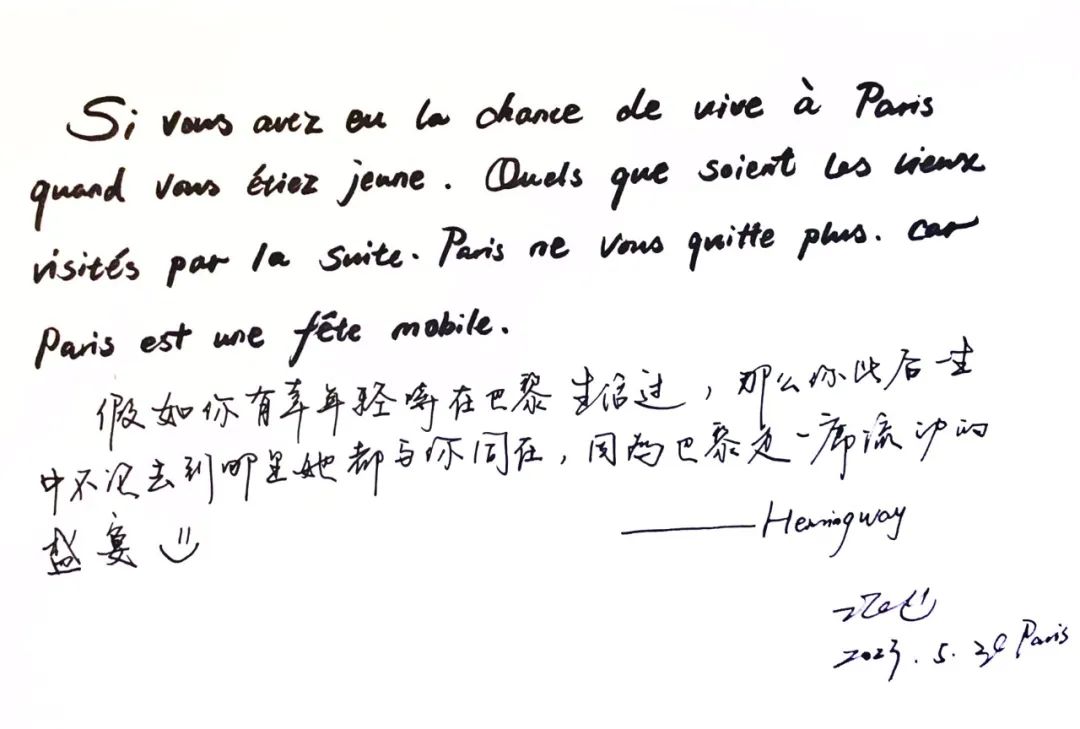 Si vous avez eu la chance de vive à Paris
quand vous étiez jeune. Quels que soient les lieux
visités par la suite. Paris ne vous quitte plus. car
Paris est une fête mobile.
假如你有幸年轻时在巴黎生活过，那么你此后一生
中不论去到哪里她都与你同在，因为巴黎是一席流动的
盛宴
——Hemingway
2023. 5. Paris